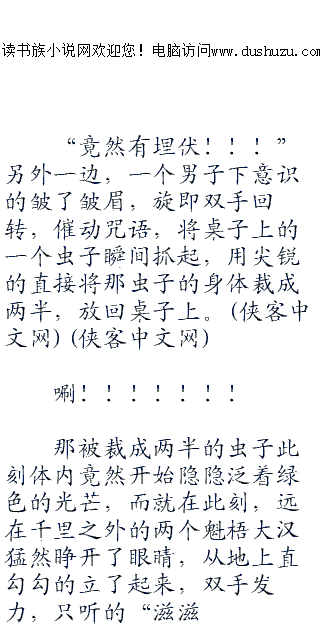 读书族小说网欢迎您！电脑访问www.dushuzu.com
“竟然有埋伏！！！”
另外一边，一个男子下意识
的皱了皱眉，旋即双手回
转，催动咒语，将桌子上的
一个虫子瞬间抓起，用尖锐
的直接将那虫子的身体裁成
两半，放回桌子上。(侠客中
文网)(侠客中文网)
唰！！！！！！！
那被裁成两半的虫子此
刻体内竟然开始隐隐泛着绿
色的光芒，而就在此刻，远
在千里之外的两个魁梧大汉
猛然睁开了眼睛，从地上直
勾勾的立了起来，双手发
力，只听的“滋滋